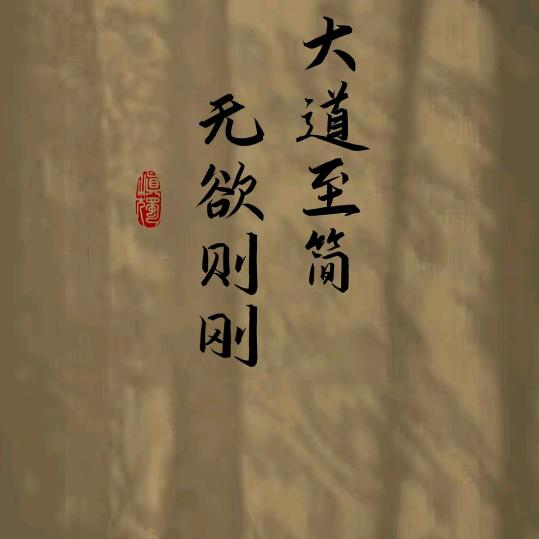 大道至简
无欲则刚